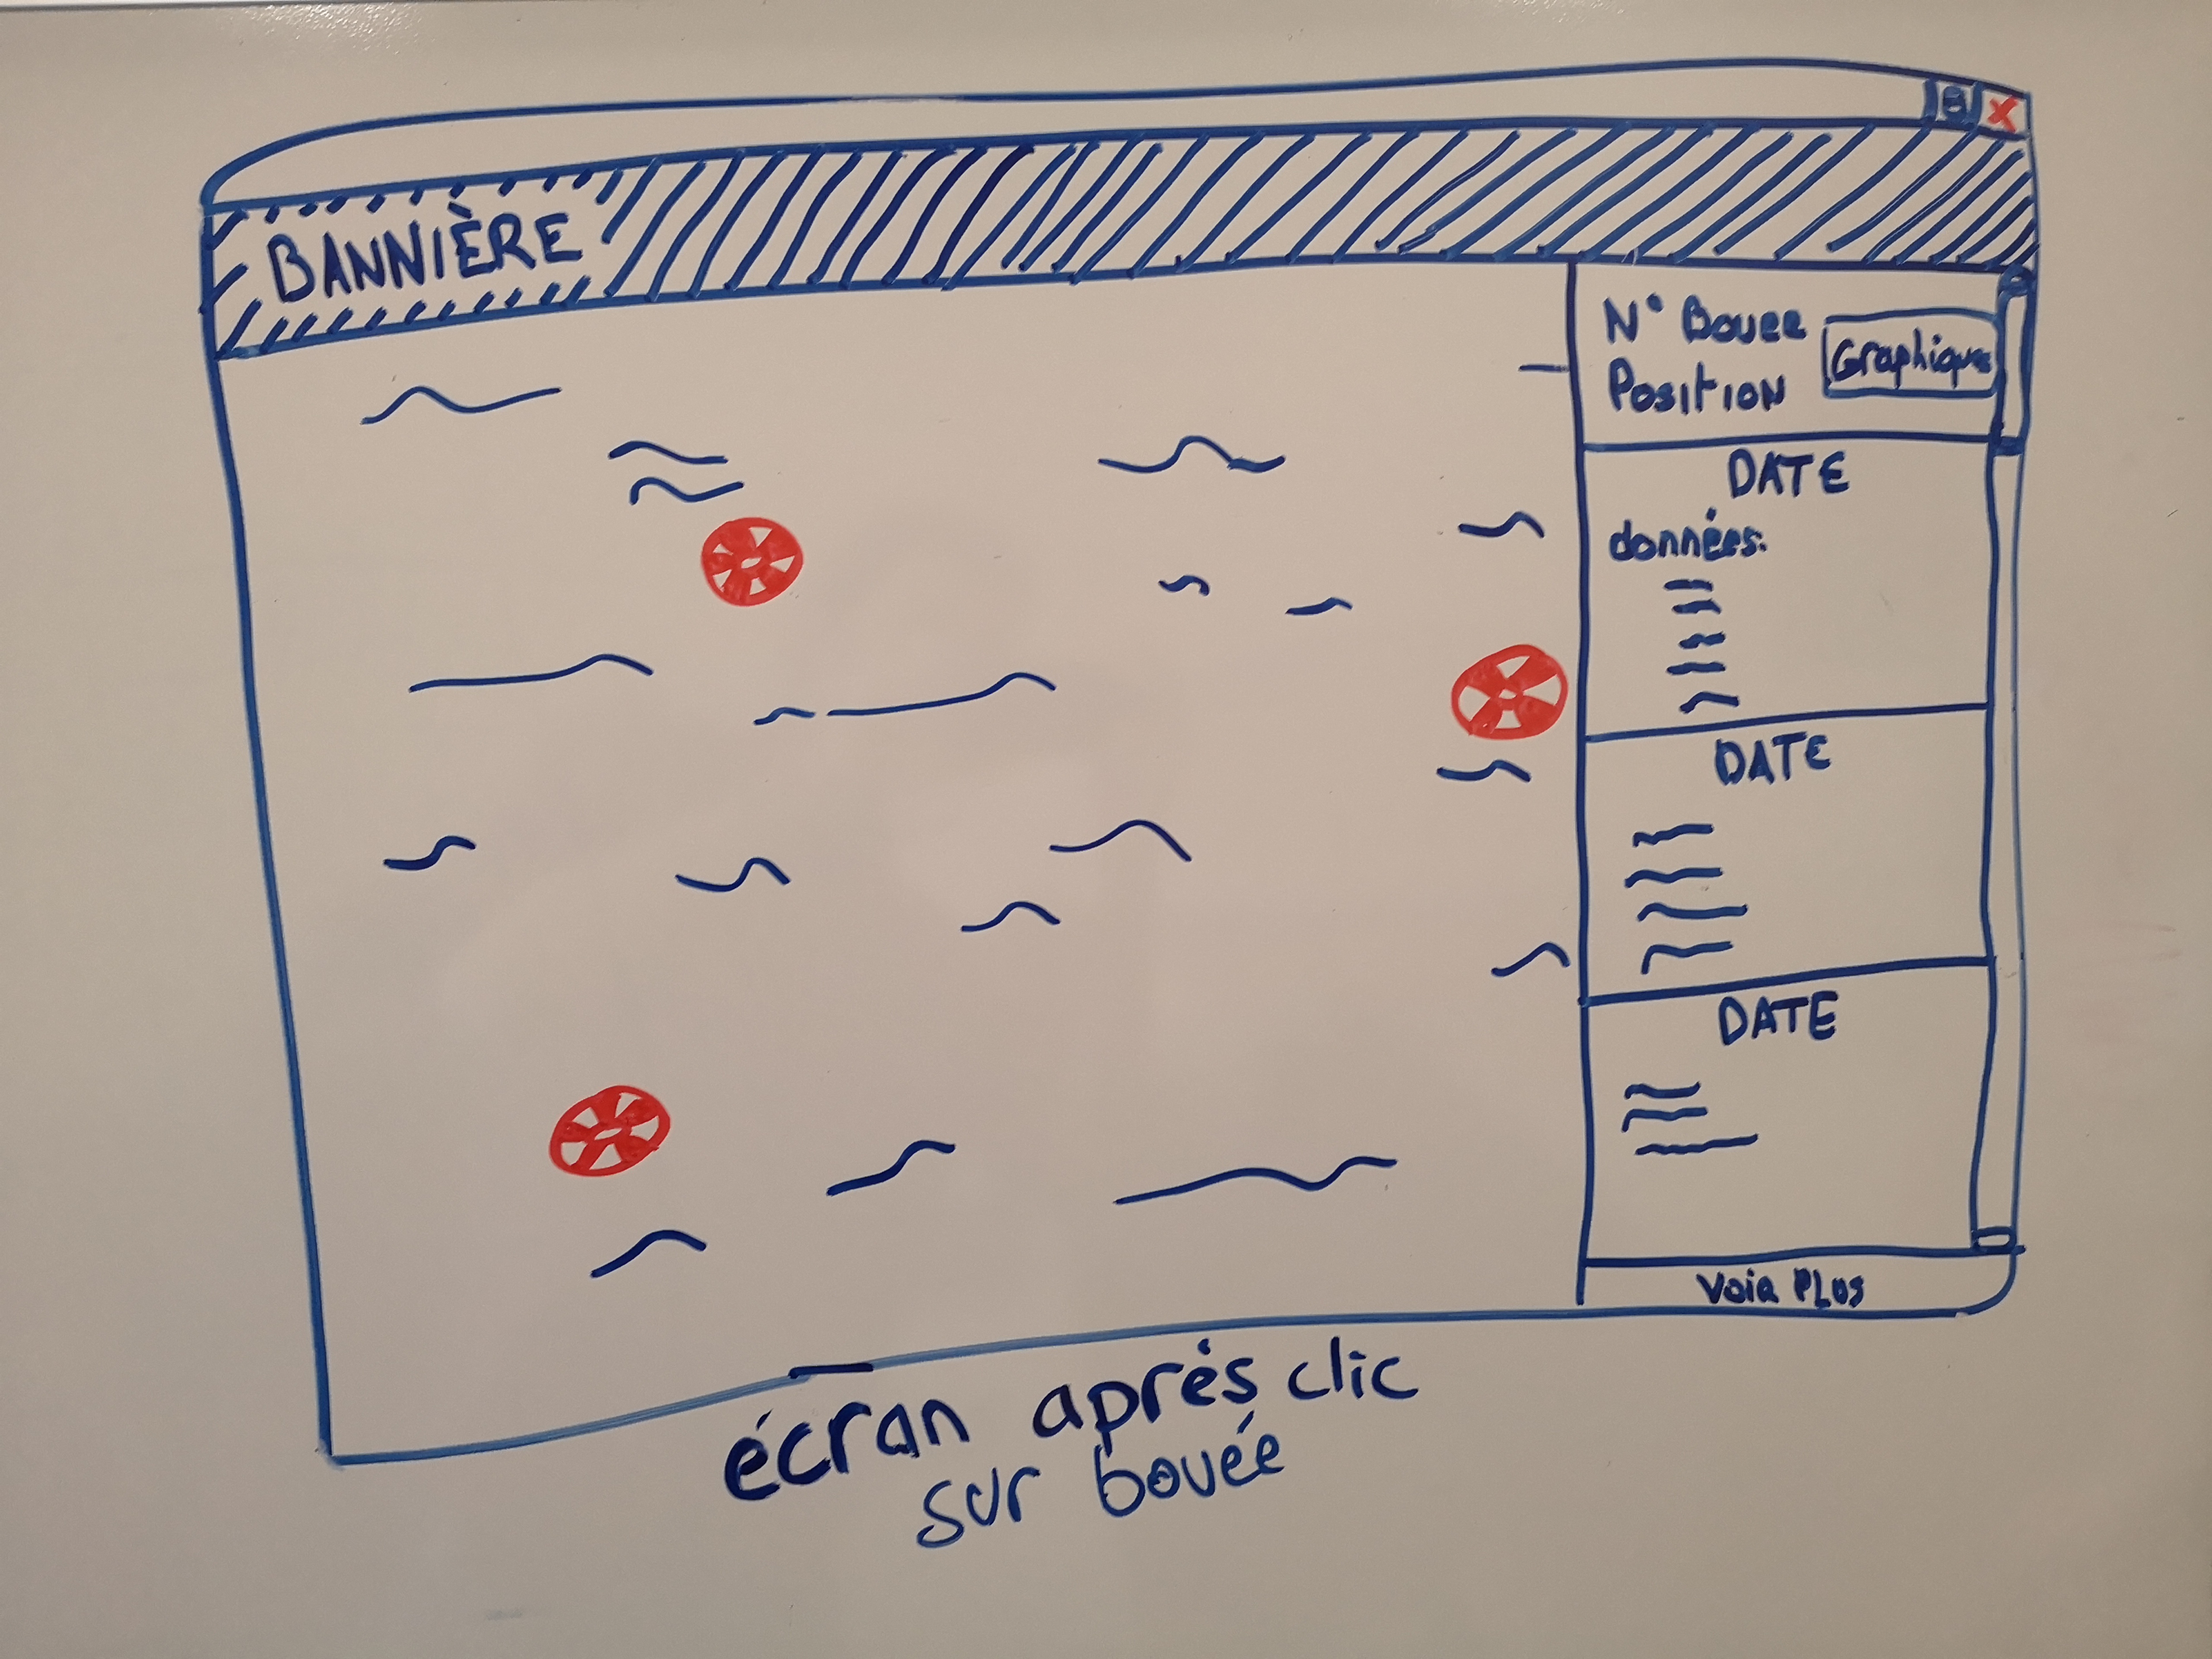 BANNIÈRE
N° Bouee
Position
Graphique
DATE
données:
DATE
DATE
Voir PLUS
écran aprés clic
sur bouée